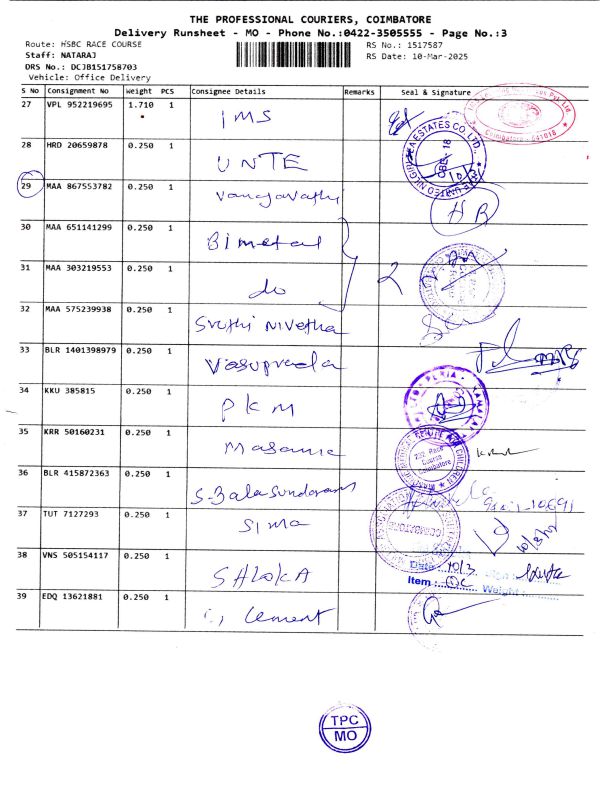 THE PROFESSIONAL COURIERS, COIMBATORE
Delivery Runsheet - MO - Phone No.:0422-3505555 - Page No.:3
Route: HSBC RACE COURSE RS No.: 1517587
Staff: NATARAJ RS Date: 10-Mar-2025
DRS No.: DCJB151758703
Vehicle: Office Delivery
S No Consignment No Weight PCS Consignee Details Remarks Seal & Signature
27 VPL 952219695 1.710 1 IMS
Coimbatore - 641018
28 HRD 20659878 0.250 1 UNTE
ESTATES CO. LTD.
CBE - 18
10/3
29 MAA 867553782 0.250 1 Vanajavathi HB
30 MAA 651141299 0.250 1 Bimetal
31 MAA 303219553 0.250 1 do 2
32 MAA 575239938 0.250 1 Sruthi Nivetha
33 BLR 1401398979 0.250 1 Vasuprada
34 KKU 385815 0.250 1 PKM
35 KRR 50160231 0.250 1 Masanic
232 Race Course Coimbatore
36 BLR 415872363 0.250 1 S. Balasundaram
37 TUT 7127293 0.250 1 SIMA
COIMBATORE
38 VNS 505154117 0.250 1 SHLOKA
Date: 10/3 Sign:
Item: OC Weight:
39 EDQ 13621881 0.250 1 Cement
TPC
MO